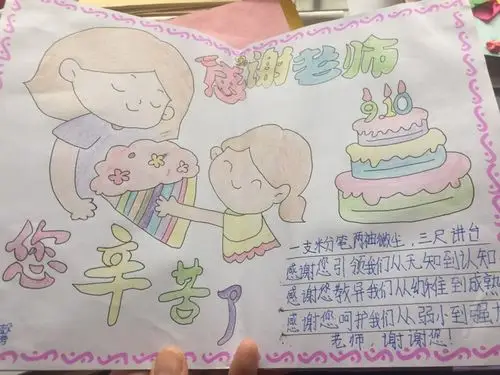 感谢老师
9.10
您辛苦了
一支粉笔,两袖微尘,三尺讲台
感谢您引领我们从无知到认知
感谢您教导我们从幼稚到成熟
感谢您呵护我们从弱小到强大
老师,谢谢您!